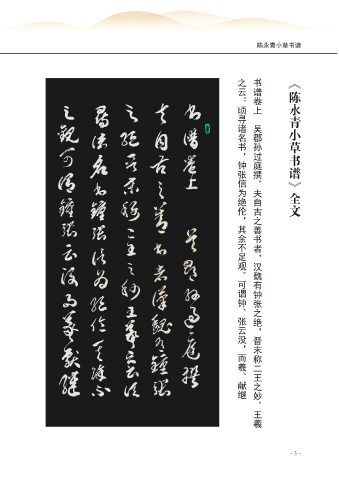 陈永青小草书谱
《陈永青小草书谱》全文
书谱卷上　吴郡孙过庭撰，夫自古之善书者，汉魏有钟张之绝，晋末称二王之妙，王羲
之云：顷寻诸名书，钟张信为绝伦，其余不足观。可谓钟、张云没，而羲、献继
书谱卷上　吴郡孙过庭撰
夫自古之善书者汉魏有钟张
之绝晋末称二王之妙王羲之云顷
寻诸名书钟张信为绝伦其余不
足观可谓钟张云没而羲献继
- 3 -